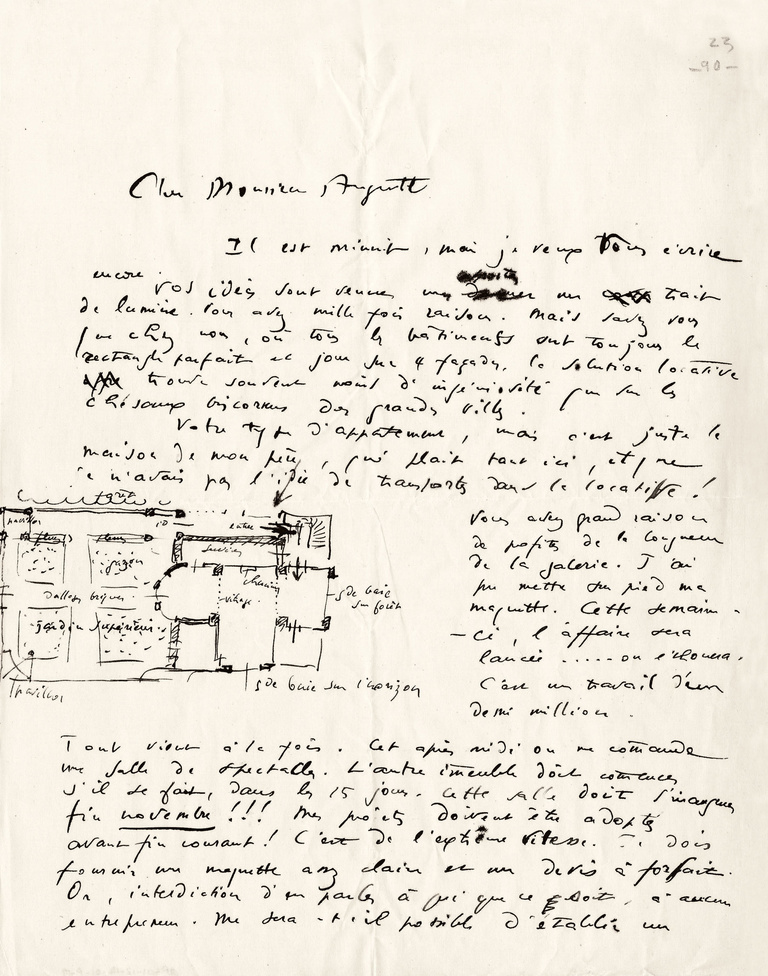 23
-90-
Cher Monsieur Auguste
Il est minuit, mais je veux vous écrire
encore.
Vos idées sont venues me apporter un trait
de lumière. Vous avez mille fois raison. Mais savez vous
que chez nous, où tous les bâtiments sont toujours le
rectangle parfait et jour sur 4 façades, la solution locative
trouve souvent moins d'ingéniosité que sur les
châteaux bicornus des grandes villes.
Votre type d'appartement, mais c'est juste la
maison de mon père, qui plait tant ici, et que
je n'avais pas l'idée de transporter dans le locatif!
pavillon
entrée
services
fleurs
fleurs
gazon
dalles briques
jardin supérieur
vitrage
cheminée
5 de baie
sur forêt
pavillon
5 de baie sur l'horizon
Vous avez grand raison
de profiter de la longueur
de la galerie. J'ai
pu mettre sur pied ma
maquette. Cette semaine-
-ci, l'affaire sera
lancée ..... ou échouera.
C'est un travail d'un
demi million.
Tout vient à la fois. Cet après midi on me comande
une salle de spectacles. L'autre imeuble doit comencer
s'il se fait, dans les 15 jours. Cette salle doit s'inaugurer
fin novembre!!! Mes projets doivent être adoptés
avant fin courant! C'est de l'extrême vitesse. Je dois
fournir une maquette assez claire et un devis à forfait.
Or, interdiction d'en parler à qui que ce soit, à aucun
entrepreneur. Me sera-t-il possible d'établir un